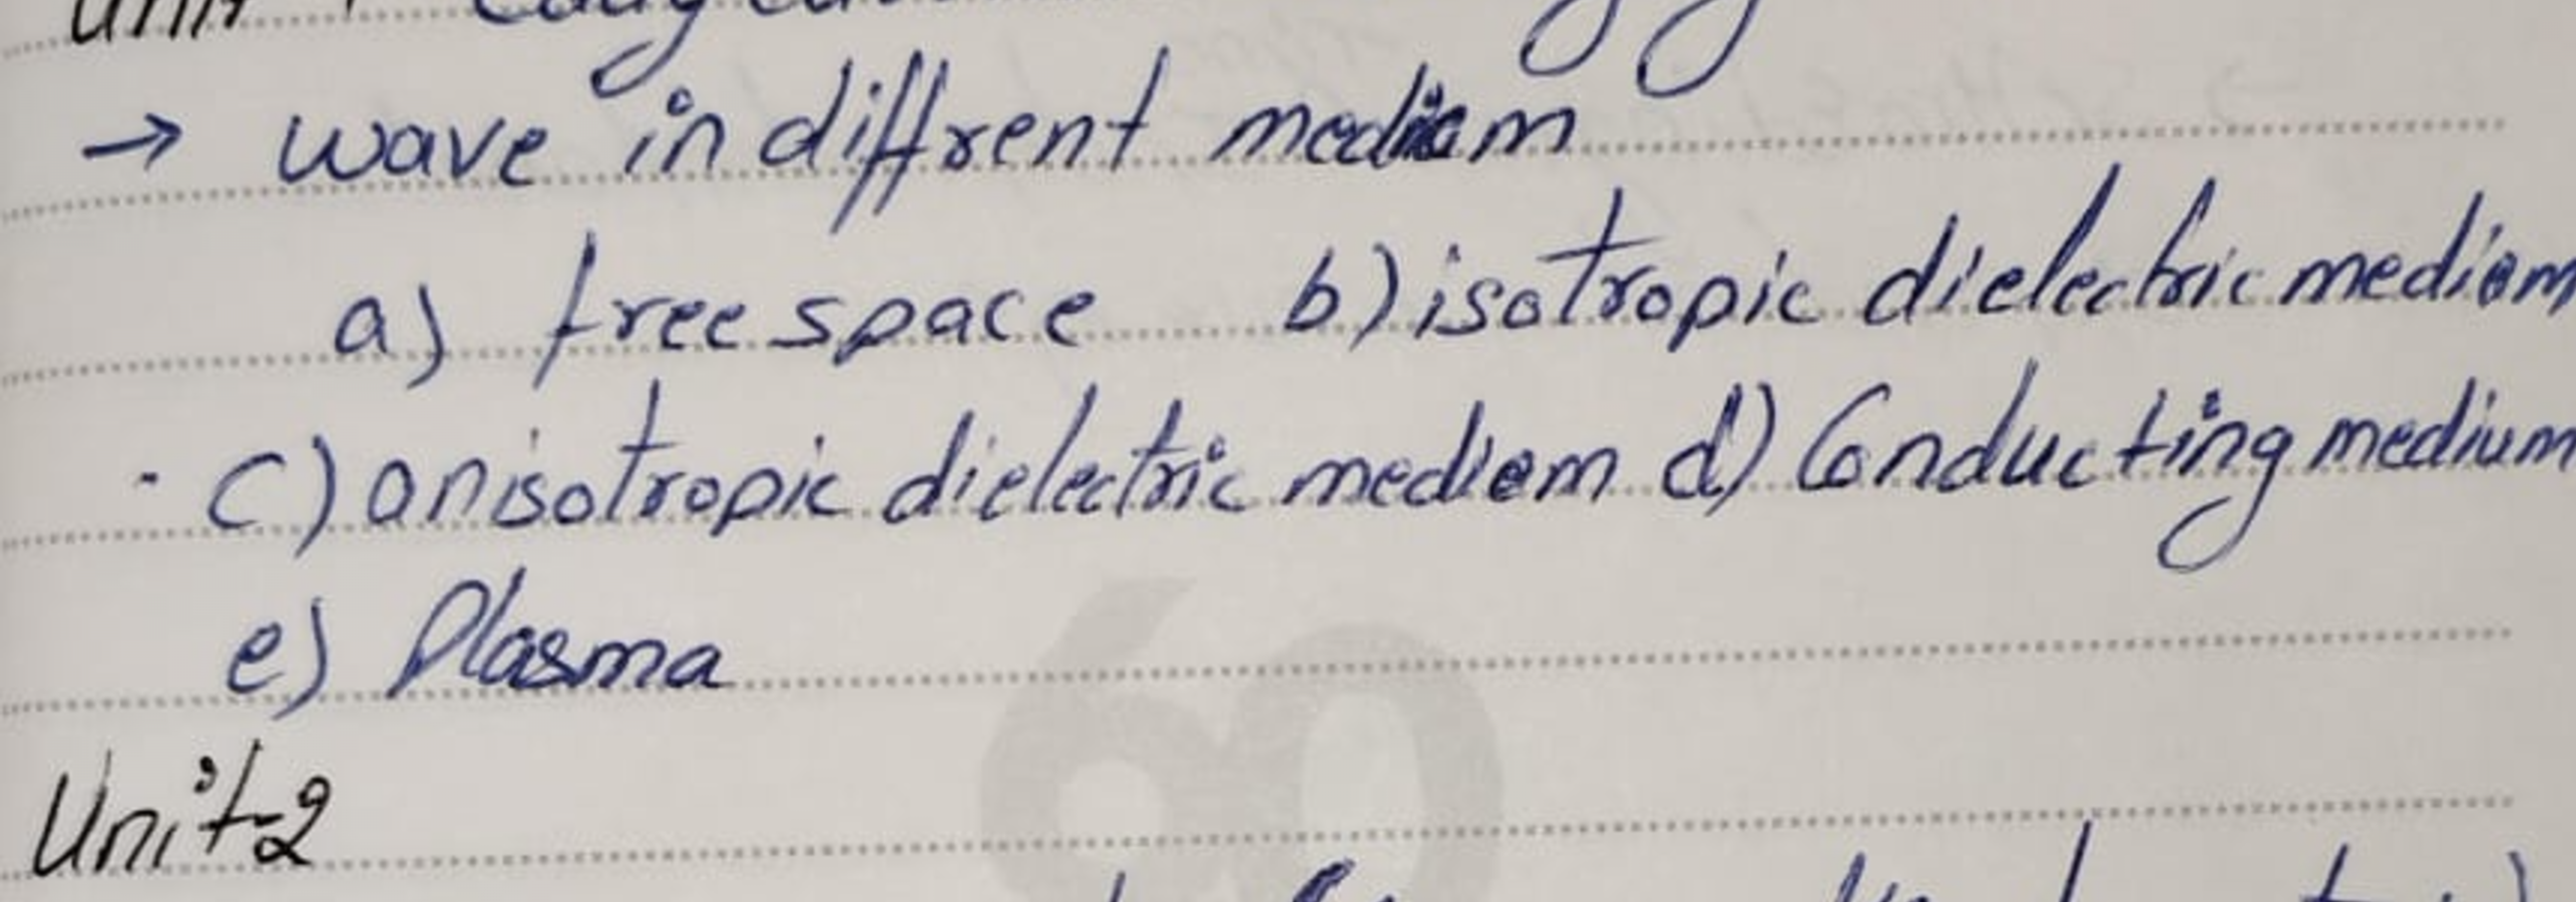 Unit
→ wave in diffrent medium
a) free space b) isotropic dielectric medium
c) anisotropic dielectric medium d) Conducting medium
e) Plasma
Unit-2